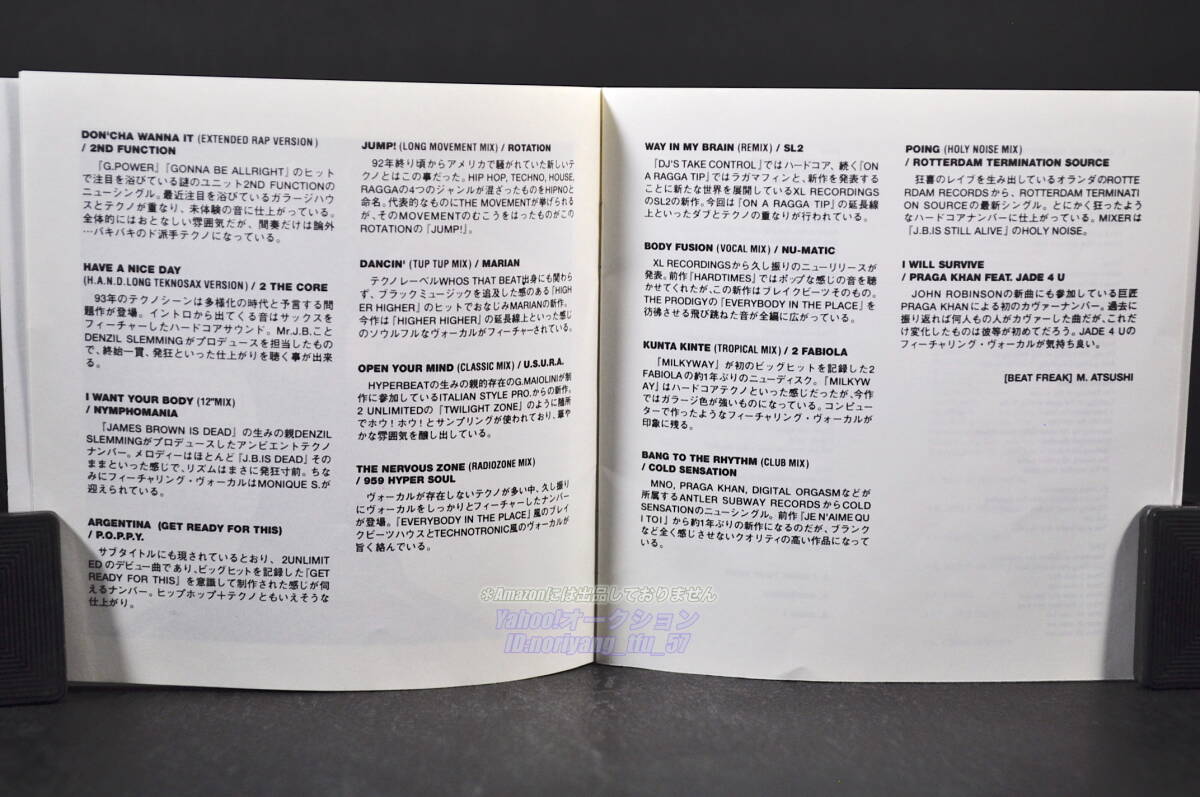 DON'CHA WANNA IT (EXTENDED RAP VERSION)
/ 2ND FUNCTION
『G.POWER』『GONNA BE ALLRIGHT』のヒット
で注目を浴びている謎のユニット2ND FUNCTIONの
ニューシングル。最近注目を浴びているガラージハウ
スとテクノが重なり、未体験の音に仕上がっている。
全体的にはおとなしい雰囲気だが、間奏だけは論外
…バキバキのド派手テクノになっている。
HAVE A NICE DAY
(H.A.N.D.LONG TEKNOSAX VERSION) / 2 THE CORE
93年のテクノシーンは多様化の時代と予言する問
題作が登場。イントロから出てくる音はサックスを
フィーチャーしたハードコアサウンド。Mr.J.B.こと
DENZIL SLEMMINGがプロデュースを担当したもの
で、終始一貫、発狂といった仕上がりを聴く事が出来
る。
I WANT YOUR BODY (12"MIX)
/ NYMPHOMANIA
『JAMES BROWN IS DEAD』の生みの親DENZIL
SLEMMINGがプロデュースしたアンビエントテクノ
ナンバー。メロディーはほとんど『J.B.IS DEAD』その
ままといった感じで、リズムはまさに発狂寸前。ちな
みにフィーチャリング・ヴォーカルはMONIQUE S.が
迎えられている。
ARGENTINA (GET READY FOR THIS)
/ P.O.P.P.Y.
サブタイトルにも現されているとおり、2UNLIMIT
EDのデビュー曲であり、ビッグヒットを記録した『GET
READY FOR THIS』を意識して制作された感じが伺
えるナンバー。ヒップホップ+テクノともいえそうな
仕上がり。
JUMP! (LONG MOVEMENT MIX) / ROTATION
92年終り頃からアメリカで騒がれていた新しいテ
クノとはこの事だった。HIP HOP, TECHNO, HOUSE,
RAGGAの4つのジャンルが混ざったものをHIPNOと
命名。代表的なものにTHE MOVEMENTが挙げられる
が、そのMOVEMENTのむこうをはったものがこの
ROTATIONの『JUMP!』。
DANCIN' (TUP TUP MIX) / MARIAN
テクノレーベルWHOS THAT BEAT出身にも関わら
ず、ブラックミュージックを追及した感のある『HIGH
ER HIGHER』のヒットでおなじみMARIANの新作。
今作は『HIGHER HIGHER』の延長線上といった感じ
のソウルフルなヴォーカルがフィーチャーされている。
OPEN YOUR MIND (CLASSIC MIX) / U.S.U.R.A.
HYPERBEATの生みの親的存在のG.MAIOLINIが制
作に参加しているITALIAN STYLE PRO.からの新作。
2 UNLIMITEDの『TWILIGHT ZONE』のように随所
でホウ!ホウ!とサンプリングが使われており、華や
かな雰囲気を醸し出している。
THE NERVOUS ZONE (RADIOZONE MIX)
/ 959 HYPER SOUL
ヴォーカルが存在しないテクノが多い中、久し振り
にヴォーカルをしっかりとフィーチャーしたナンバー
が登場。『EVERYBODY IN THE PLACE』風のブレイ
クビーツハウスとTECHNOTRONIC風のヴォーカルが
旨く絡んでいる。
WAY IN MY BRAIN (REMIX) / SL2
『DJ'S TAKE CONTROL』ではハードコア、続く『ON
A RAGGA TIP』ではラガマフィンと、新作を発表する
ごとに新たな世界を展開しているXL RECORDINGS
のSL2の新作。今回は『ON A RAGGA TIP』の延長線
上といったダブとテクノの重なりが行われている。
BODY FUSION (VOCAL MIX) / NU-MATIC
XL RECORDINGSから久し振りのニューリリースが
発表。前作『HARDTIMES』ではポップな感じの音を聴
かせてくれたが、この新作はブレイクビーツそのもの。
THE PRODIGYの『EVERYBODY IN THE PLACE』を
彷彿させる飛び跳ねた音が全編に広がっている。
KUNTA KINTE (TROPICAL MIX) / 2 FABIOLA
『MILKYWAY』が初のビッグヒットを記録した2
FABIOLAの約1年ぶりのニューディスク。『MILKYW
AY』はハードコアテクノといった感じだったが、今作
ではガラージ色が強いものになっている。コンピュー
ターで作ったようなフィーチャリング・ヴォーカルが
印象に残る。
BANG TO THE RHYTHM (CLUB MIX)
/ COLD SENSATION
MNO, PRAGA KHAN, DIGITAL ORGASMなどが
所属するANTLER SUBWAY RECORDSからCOLD
SENSATIONのニューシングル。前作『JE N'AIME QU
I TOI』から約1年ぶりの新作になるのだが、ブランク
など全く感じさせないクオリティの高い作品になって
いる。
POING (HOLY NOISE MIX)
/ ROTTERDAM TERMINATION SOURCE
狂喜のレイブを生み出しているオランダのROTTE
RDAM RECORDSから、ROTTERDAM TERMINATI
ON SOURCEの最新シングル。とにかく狂ったよう
なハードコアナンバーに仕上がっている。MIXERは
『J.B.IS STILL ALIVE』のHOLY NOISE。
I WILL SURVIVE
/ PRAGA KHAN FEAT. JADE 4 U
JOHN ROBINSONの新曲にも参加している巨匠
PRAGA KHANによる初のカヴァーナンバー。過去に
振り返れば何人もの人がカヴァーした曲だが、これだ
け変化したものは彼等が初めてだろう。JADE 4 Uの
フィーチャリング・ヴォーカルが気持ち良い。
[BEAT FREAK] M. ATSUSHI
※Amazonには出品しておりません
Yahoo!オークション
ID:noriyang_tfu_57